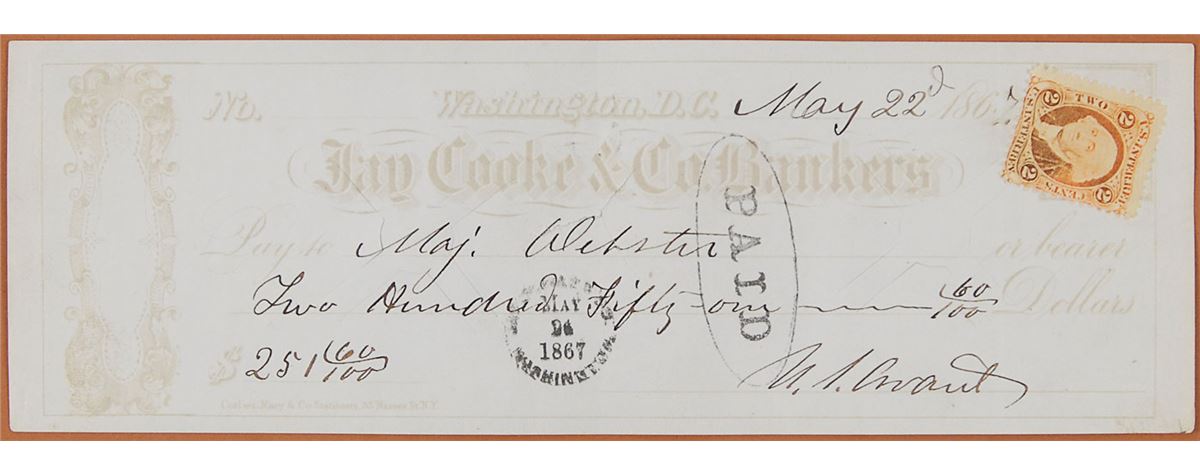 No. Washington, D.C. May 22d 1867
Jay Cooke & Co. Bankers
Pay to Maj. Webster or bearer
Two Hundred Fifty-one 60/100 Dollars
$ 251 60/100
U. S. Grant
PAID
MAY
24
1867
WASHINGTON
U.S. INTER. REV.
TWO
2
2
CENTS
2
2
& Co. Stationers, 35 Nassau St. N.Y.